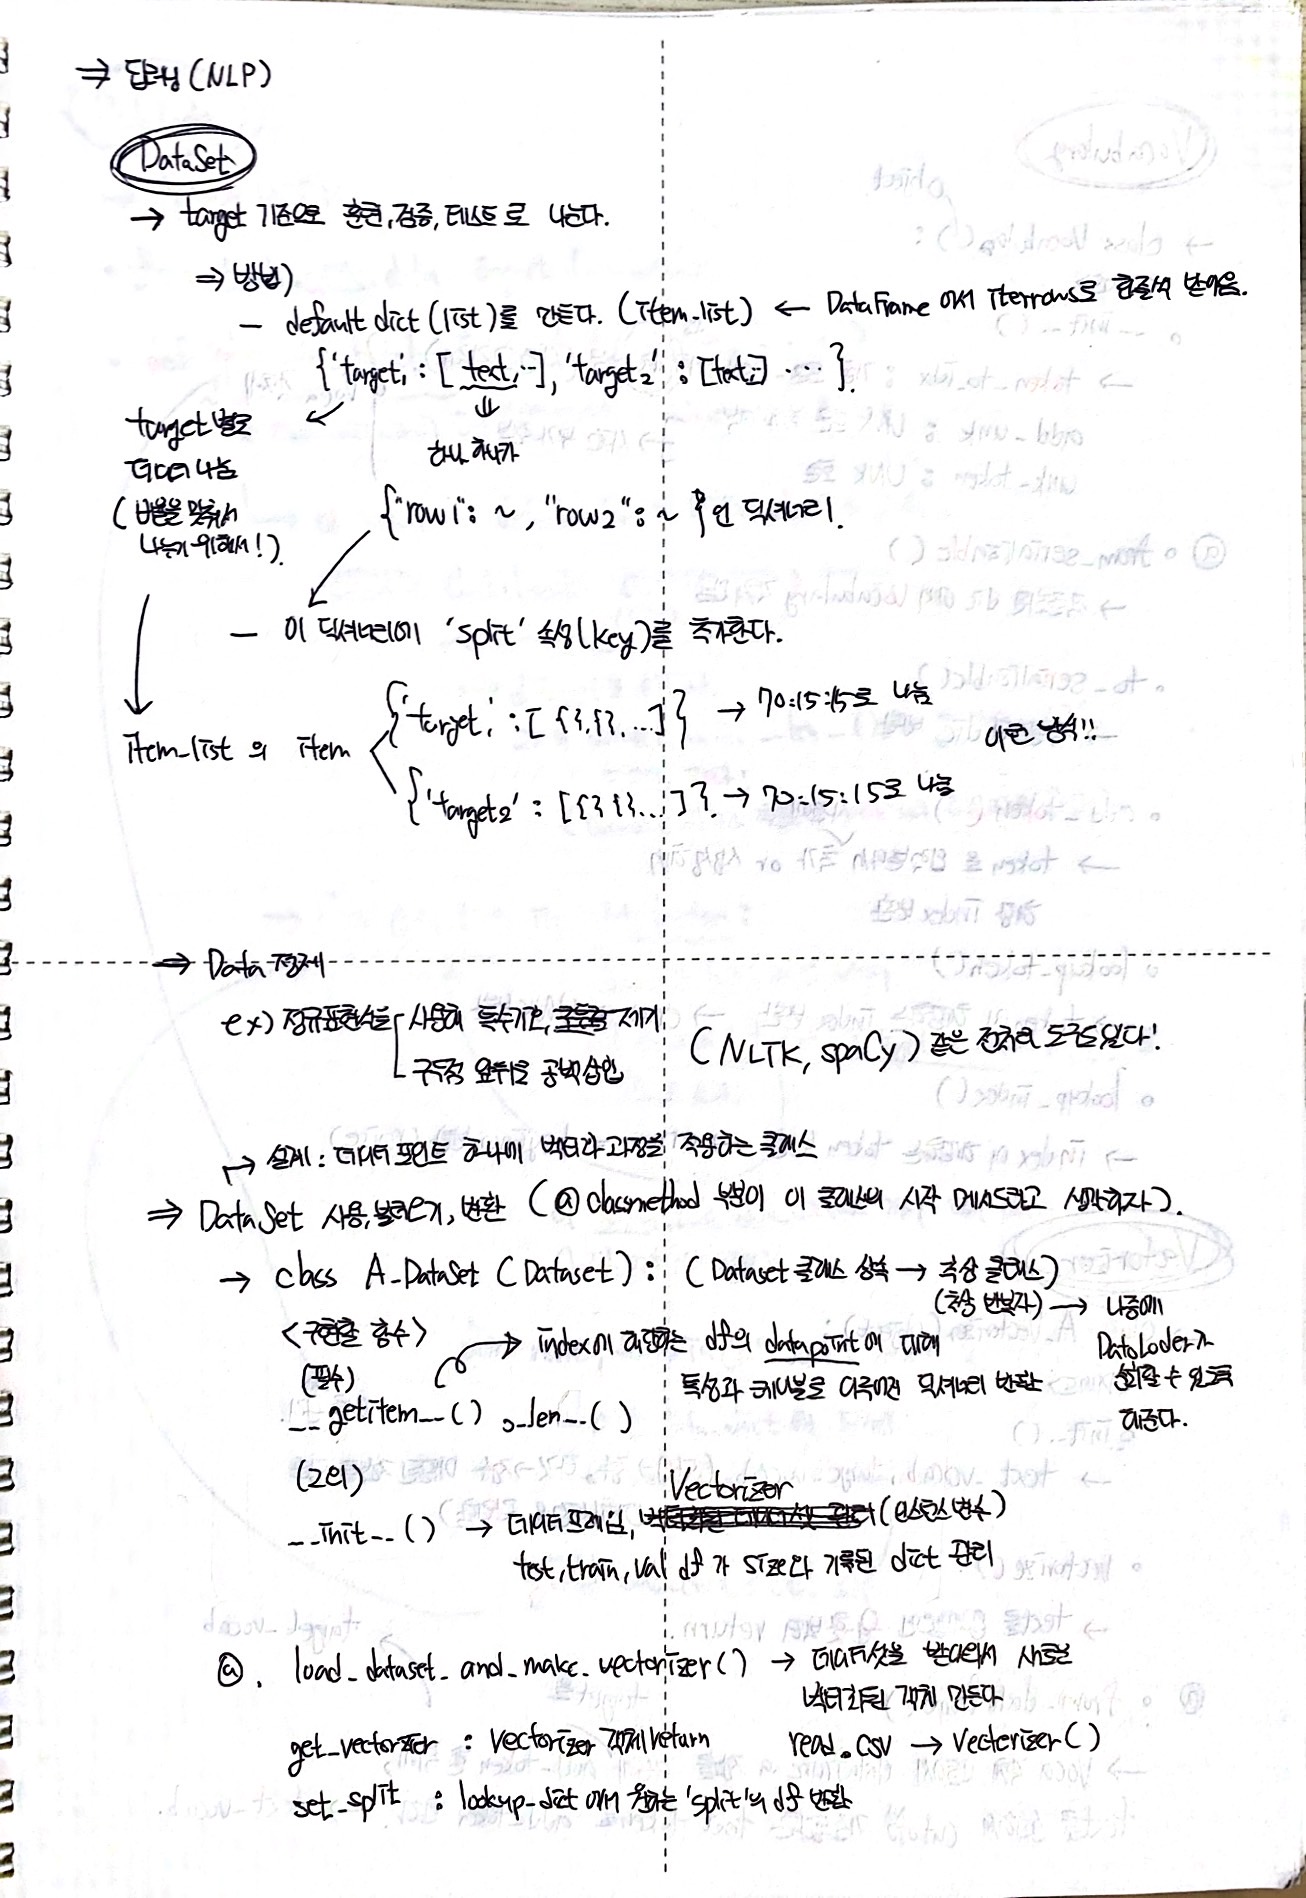 ⇒ 딥러닝 (NLP)
DataSet
→ target 기준으로 훈련, 검증, 테스트로 나눈다.
⇒ 방법)
- default dict (list)를 만든다. (item_list) ← DataFrame 에서 iterrows로 한줄씩 받아옴.
{'target1' : [text, ...], 'target2' : [text, ..] ... }.
target 별로
데이터 나눔
(비율을 맞춰서
나누기 위해서!).
하나 하나가
{"row1": ~, "row2": ~ }인 딕셔너리!
- 이 딕셔너리에 'split' 속성(key)를 추가한다.
item_list 의 item
{'target1' : [ {}, {}, ...] } → 70:15:15로 나눔
{'target2' : [{} {} ... ] }. → 70:15:15로 나눔
이런 방식!!
⇒ Data 정제
ex) 정규표현식을 사용해 특수기호, 제거
구두점 앞뒤로 공백 삽입
(NLTK, spaCy) 같은 전처리 도구도 있다!
→ 설계 : 데이터 포인트 하나에 벡터화 과정을 적용하는 클래스
⇒ DataSet 사용, 불러오기, 변환 (@classmethod 부분이 이 클래스의 시작 메서드라고 생각하자).
→ class A_DataSet (Dataset) : (Dataset 클래스 상속 → 추상 클래스)
(추상 반복자) → 나중에
DataLoder가
순회할 수 있도록
해준다.
<구현할 함수>
(필수)
→ index에 해당하는 df의 datapoint에 대해
특성과 레이블로 이루어진 딕셔너리 반환
__getitem__(), _len__()
(그외)
Vectorizer
__init__() → 데이터프레임, (인스턴스 변수)
test, train, val df 가 size와 기록된 dict 관리
@. load_dataset_and_make_vectorizer() → 데이터셋을 받아와서 새로운
벡터화된 객체 만든다
get_vectorizer : Vectorizer 객체 return
read.csv → Vectorizer()
set_split : lookup_dict 에서 원하는 'split'의 df 반환